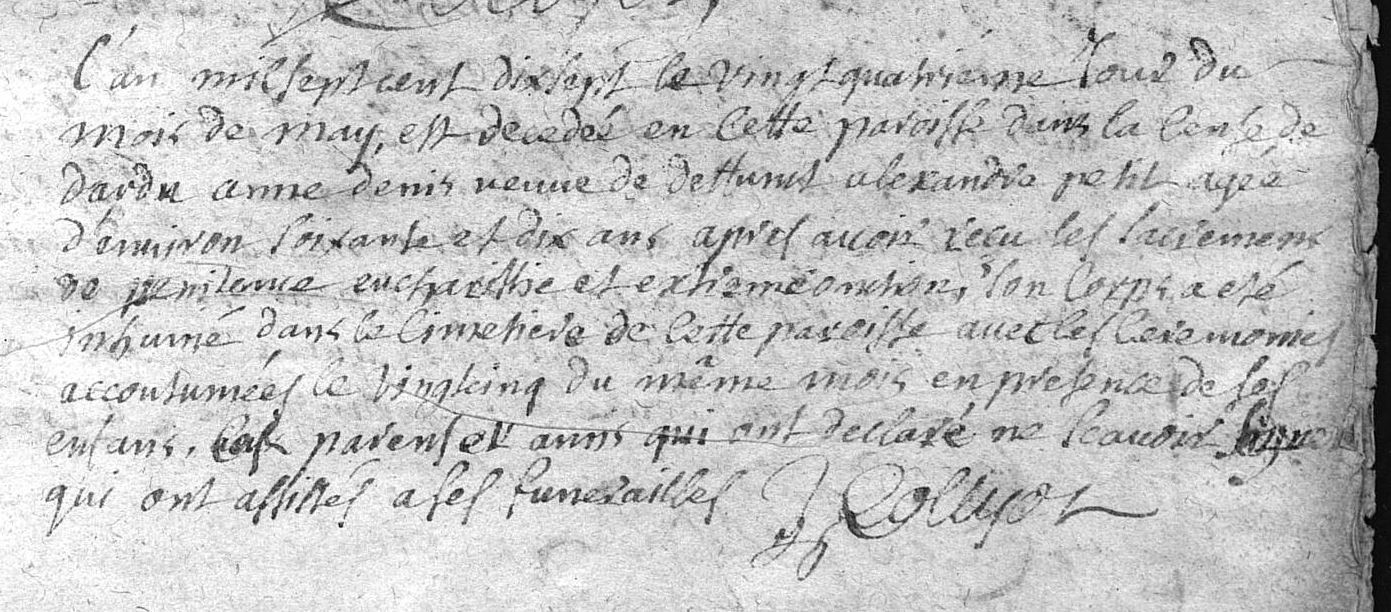 L'an mil sept cent dixsept le vingt quatrieme Jour du
mois de may, est decedée en cette paroisse dans la Cense de
dardu anne denis veuve de deffunct alexandre petit agée
d'environ soixante et dix ans apres avoir reçu les sacremens
de penitence eucharistie et extremeonction, son corps a eté
inhumé dans le Cimetiere de cette paroisse avec les ceremonies
accoutumées le vingtcinq du même mois en presence de ses
enfans, parens et amis qui ont declaré ne scavoir signer
qui ont assistés a ses funerailles